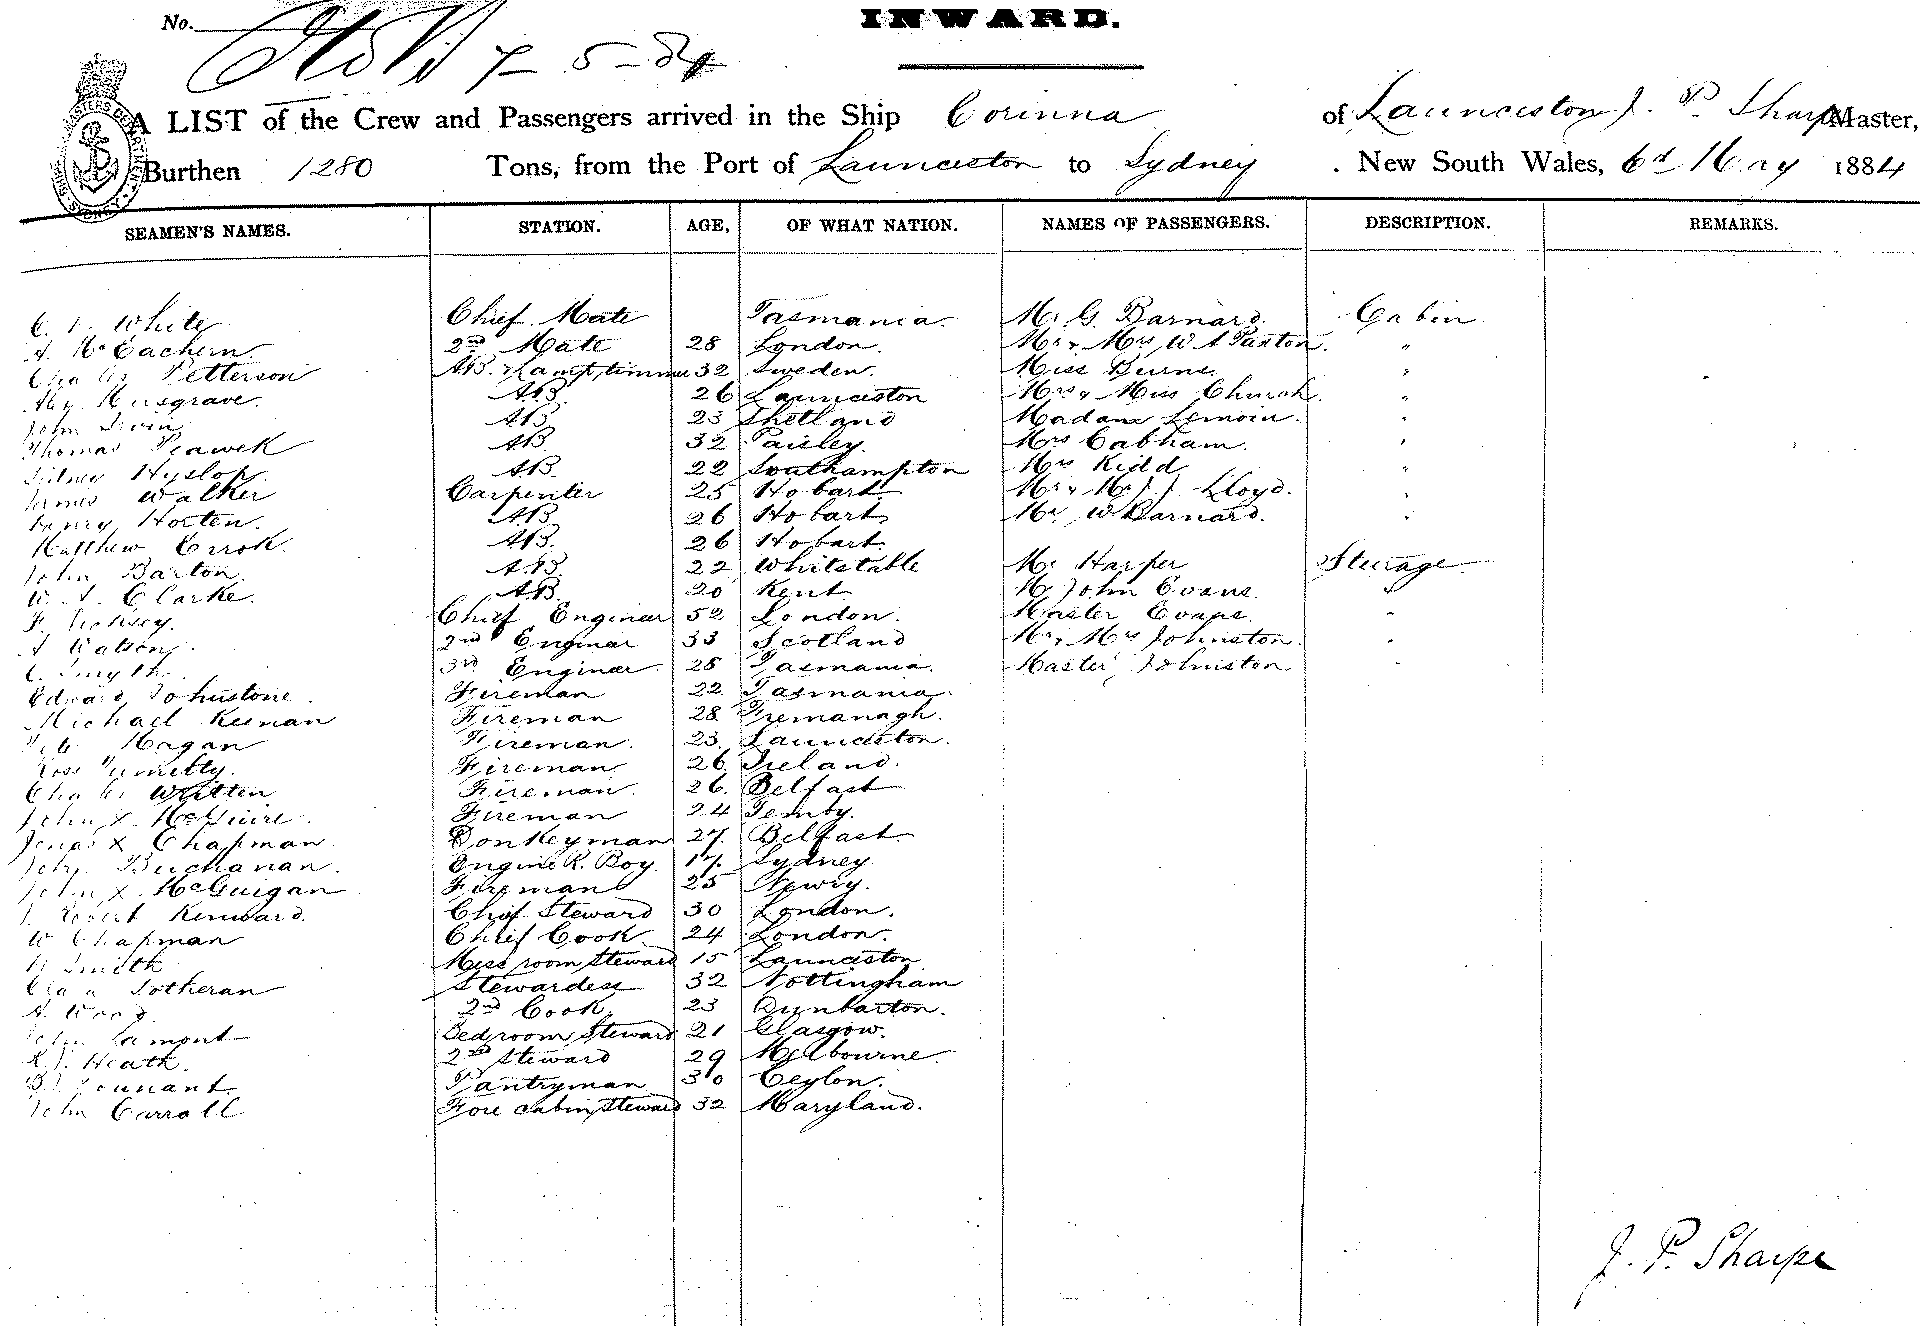 No.
INWARD.
7-5-84
A LIST of the Crew and Passengers arrived in the Ship Corinna of Launceston J. P. Sharpe Master,
Burthen 1280 Tons, from the Port of Launceston to Sydney. New South Wales, 6d May 1884
SEAMEN'S NAMES. STATION. AGE, OF WHAT NATION. NAMES OF PASSENGERS. DESCRIPTION. REMARKS.
White Chief Mate Tasmania. Mr G. Barnard. Cabin
A McEachern. 2nd Mate 28 London. Mr & Mrs W A Paxton. "
Petterson AB. & Lamptrimmer 32 Sweden. Miss Burns. "
Musgrave. AB 26 Launceston Mrs & Miss Church. "
John Irvin AB 23 Shetland Madam Lemoin. "
Thomas AB 32 Paisley. Mrs Cabham. "
Sidney Hyslop. AB. 22 Southampton Mrs Kidd "
James Walker Carpenter 25 Hobart Mr & Mrs J. J. Lloyd. "
Henry Horten. AB 26 Hobart Mr W Barnard. "
Matthew Errok. AB. 26 Hobart
John Barton. AB. 22 Whitstable Mr Harper Steerage
W. A. Clarke. AB. 20 Kent. Mr John Evans. "
Chief Engineer 52 London. Master Evans. "
A Watson. 2nd Engineer 33 Scotland Mr & Mrs Johnston. "
C. Smyth. 3rd Engineer 25 Tasmania. Master Johnston "
Edward Johnstone. Fireman 22 Tasmania.
Michael Keenan Fireman 28 Fremanagh.
Hagan Fireman. 23. Launceston.
Ross Fireman 26 Ireland.
Charles Written Fireman. 26. Belfast
John X McGuire. Fireman 24 Tenby.
Jonas X Chapman Donkeyman 27. Belfast
John Buchanan. Engine R. Boy. 17. Sydney
John X McGuigan Fireman 25 Newry.
Robert Kenward. Chief Steward 30 London.
W Chapman Chief Cook 24 London.
Smith Mess room Steward 15 Launceston
Sotheran Stewardess 32 Nottingham
A Wood 2nd Cook 23 Dunbarton.
John Lamont Bedroom Steward 21 Glasgow.
Heath. 2nd Steward 29 Melbourne.
Tennant. Pantryman 30 Ceylon.
John Carroll Fore cabin Steward 32 Maryland.
J. P. Sharpe